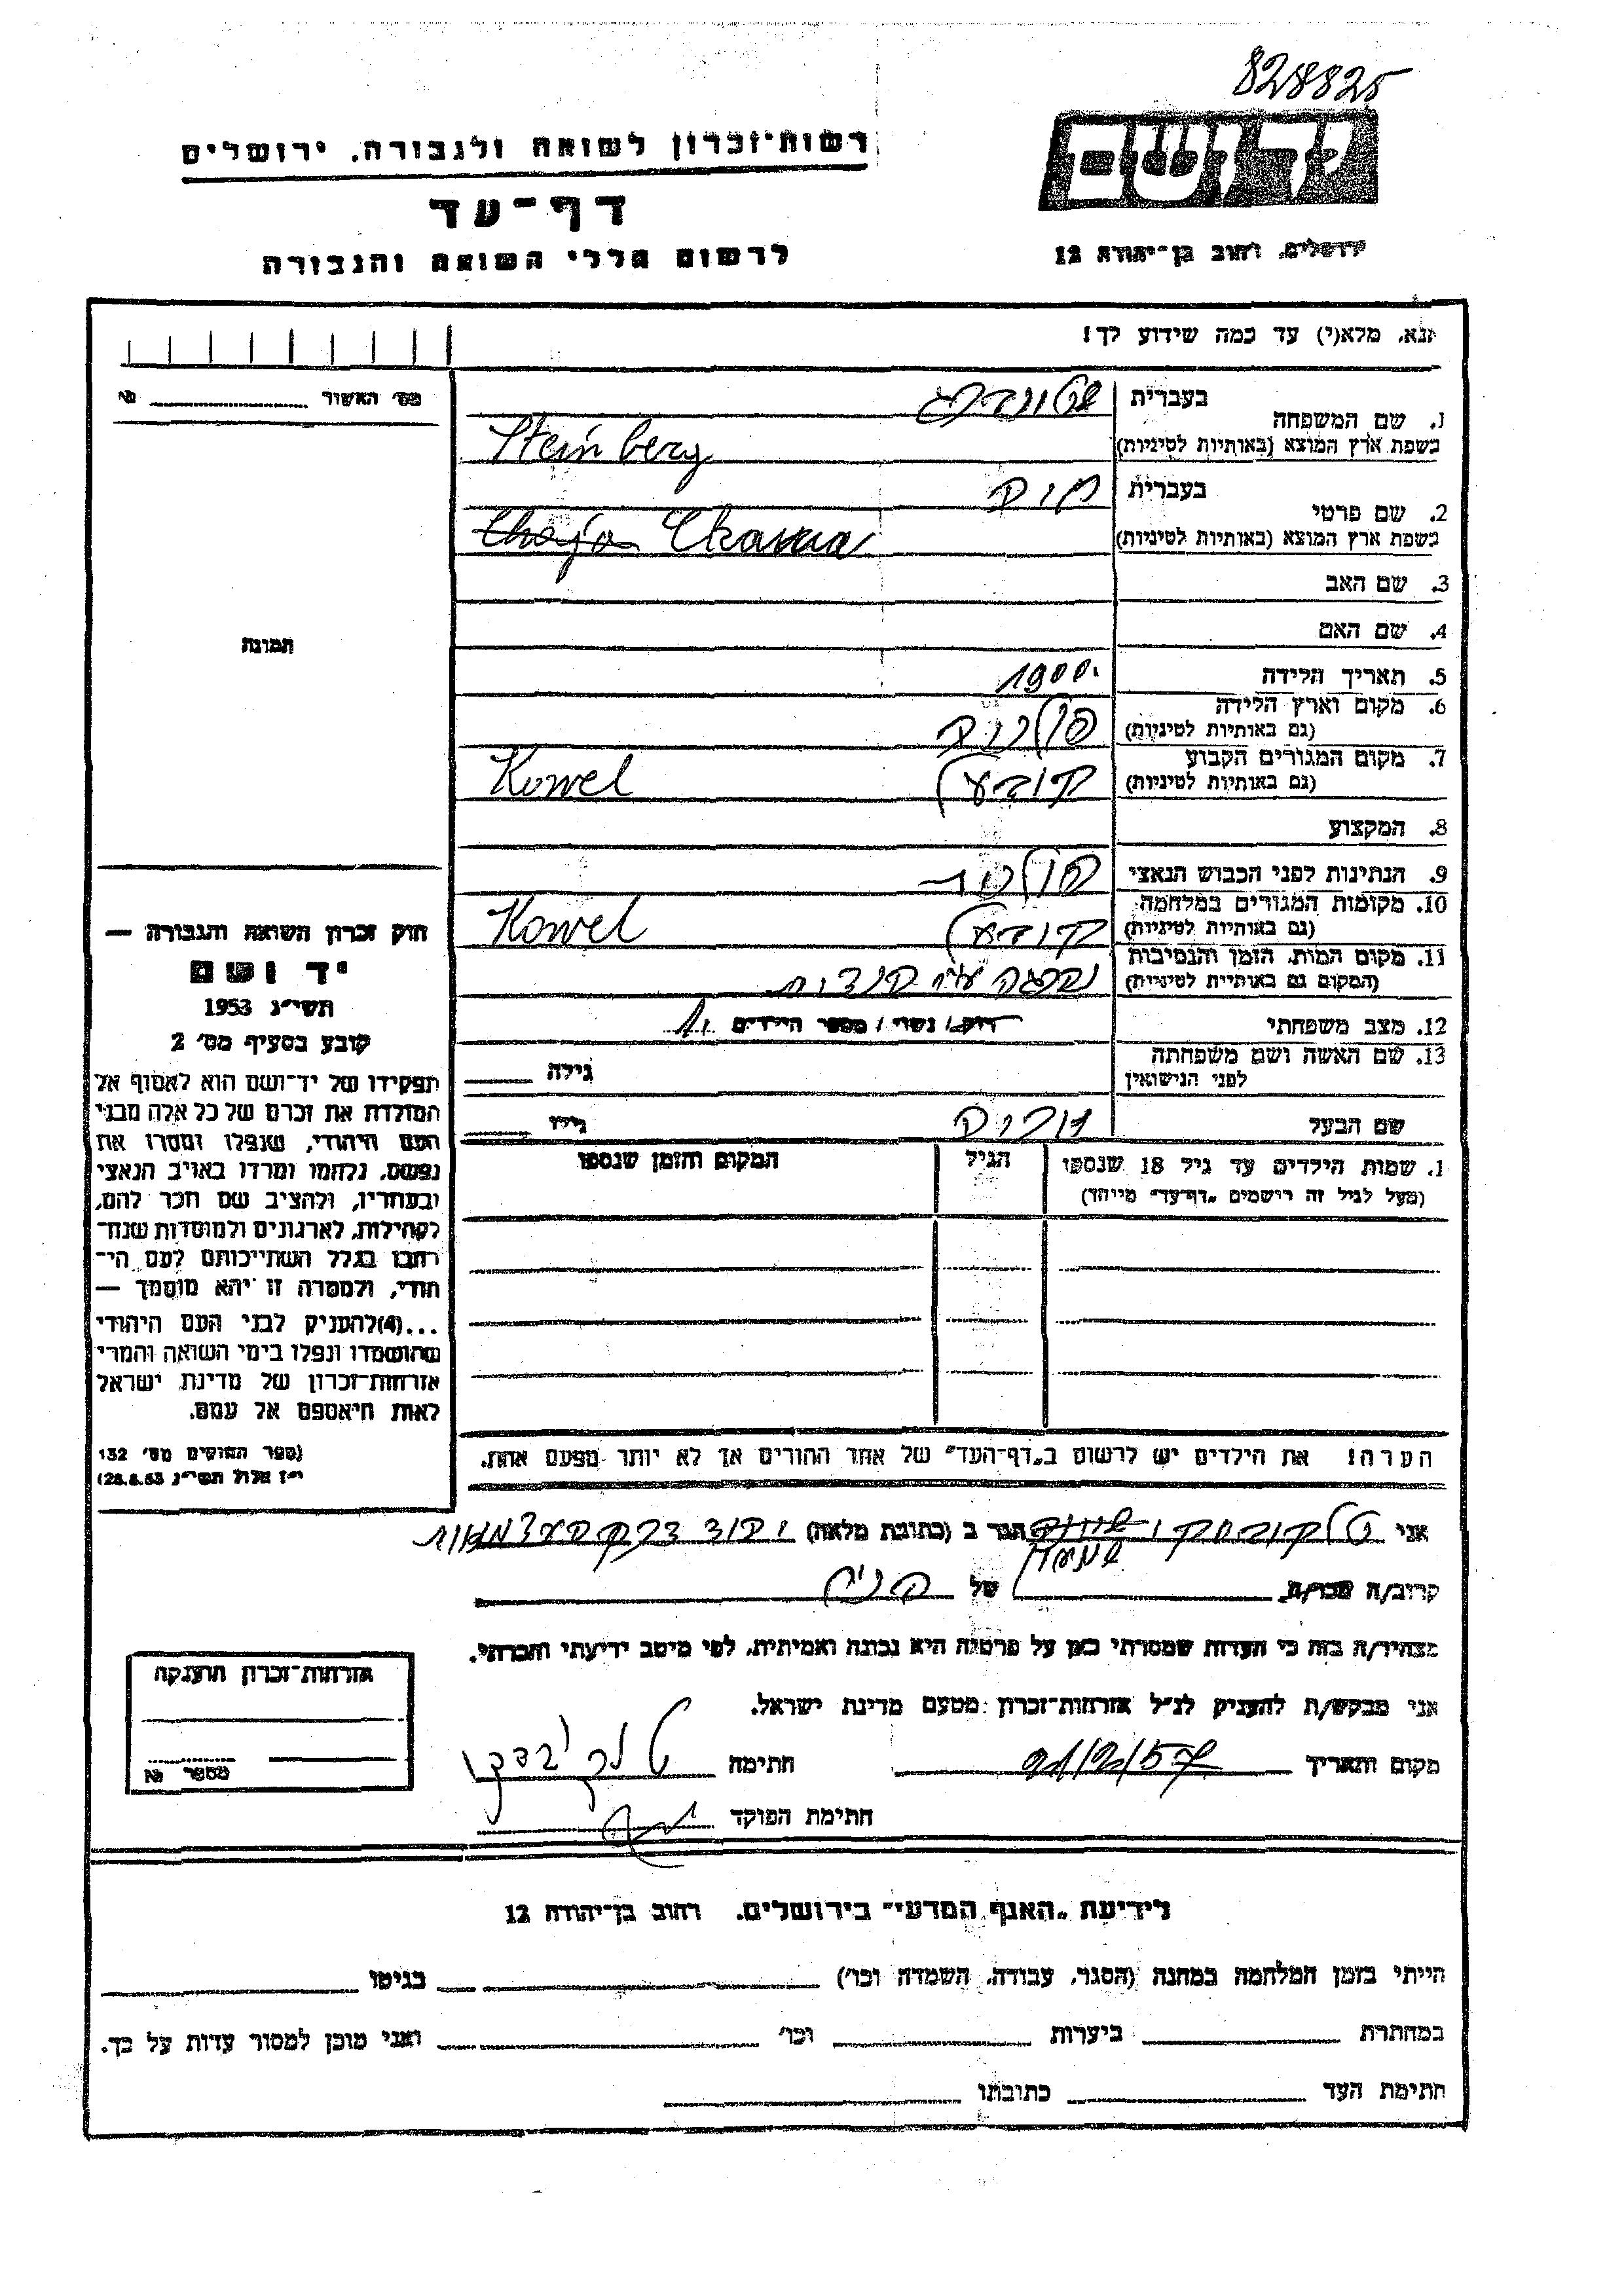 828825
יד ושם
רשות־זכרון לשואה ולגבורה, ירושלים
דף־עד
לרשום חללי השואה והגבורה
ירושלים, רחוב בן־יהודה 12
נא, מלא(י) עד כמה שידוע לך!
מס׳ האשור №
תמונה
חוק זכרון השואה והגבורה —
יד ושם
תשי״ג 1953
קובע בסעיף מס׳ 2
תפקידו של יד־ושם הוא לאסוף אל
המולדת את זכרם של כל אלה מבני
העם היהודי, שנפלו ומסרו את
נפשם, נלחמו ומרדו באויב הנאצי
ובעוזריו, ולהציב שם וזכר להם,
לקהילות, לארגונים ולמוסדות שנח־
רבו בגלל השתייכותם לעם הי־
הודי, ולמטרה זו יהא מוסמך —
...(4)להעניק לבני העם היהודי
שהושמדו ונפלו בימי השואה והמרי
אזרחות־זכרון של מדינת ישראל
לאות היאספם אל עמם.
(ספר החוקים מס׳ 132
י״ז אלול תשי״ג 28.8.53)
1. שם המשפחה בעברית שטינברג
בשפת ארץ המוצא (באותיות לטיניות) Steinberg
2. שם פרטי בעברית
בשפת ארץ המוצא (באותיות לטיניות) Chaja
3. שם האב
4. שם האם
5. תאריך הלידה 1900
6. מקום וארץ הלידה פולניה
(גם באותיות לטיניות)
7. מקום המגורים הקבוע קובעל Kowel
(גם באותיות לטיניות)
8. המקצוע
9. הנתינות לפני הכבוש הנאצי פולנית
10. מקומות המגורים במלחמה קובעל Kowel
(גם באותיות לטיניות)
11. מקום המות, הזמן והנסיבות נהרגה
(המקום גם באותיות לטיניות)
12. מצב משפחתי רוק/ נשוי/ מספר הילדים
13. שם האשה ושם משפחתה גילה
לפני הנישואין
שם הבעל גילו
1. שמות הילדים עד גיל 18 שנספו הגיל המקום והזמן שנספו
(מעל לגיל זה רישמים „דף־עד״ מייחד)
הערה! את הילדים יש לרשום ב„דף־העד״ של אחד ההורים אך לא יותר מפעם אחת.
אני הגר ב (כתובת מלאה)
קרוב/ה מכר/ה של
מצהיר/ה בזה כי העדות שמסרתי כאן על פרטיה היא נכונה ואמיתית, לפי מיטב ידיעתי והכרתי.
אני מבקש/ת להעניק לנ״ל אזרחות־זכרון מטעם מדינת ישראל.
מקום ותאריך חתימה
חתימת הפוקד
אזרחות־זכרון הוענקה
מספר №
לידיעת „האגף המדעי״ בירושלים, רחוב בן־יהודה 12
הייתי בזמן המלחמה במחנה (הסגר, עבודה, השמדה וכו׳) בגיטו
במחתרת ביערות וכו׳ ואני מוכן למסור עדות על כך.
חתימת העד כתובתו